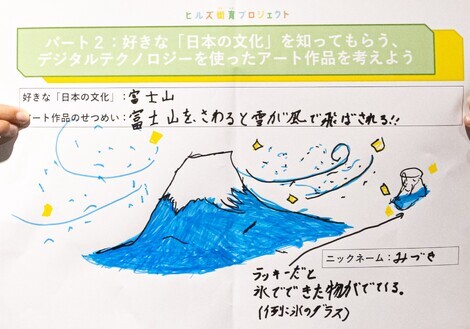 ヒルズ街育プロジェクト
パート2：好きな「日本の文化」を知ってもらう、
デジタルテクノロジーを使ったアート作品を考えよう
好きな「日本の文化」：富士山
アート作品のせつめい：富士山をさわると雲が風で飛ばされる!!
ニックネーム：みづき
ラッキーだと
氷でできた物がでてくる。
(例:氷のグラス)